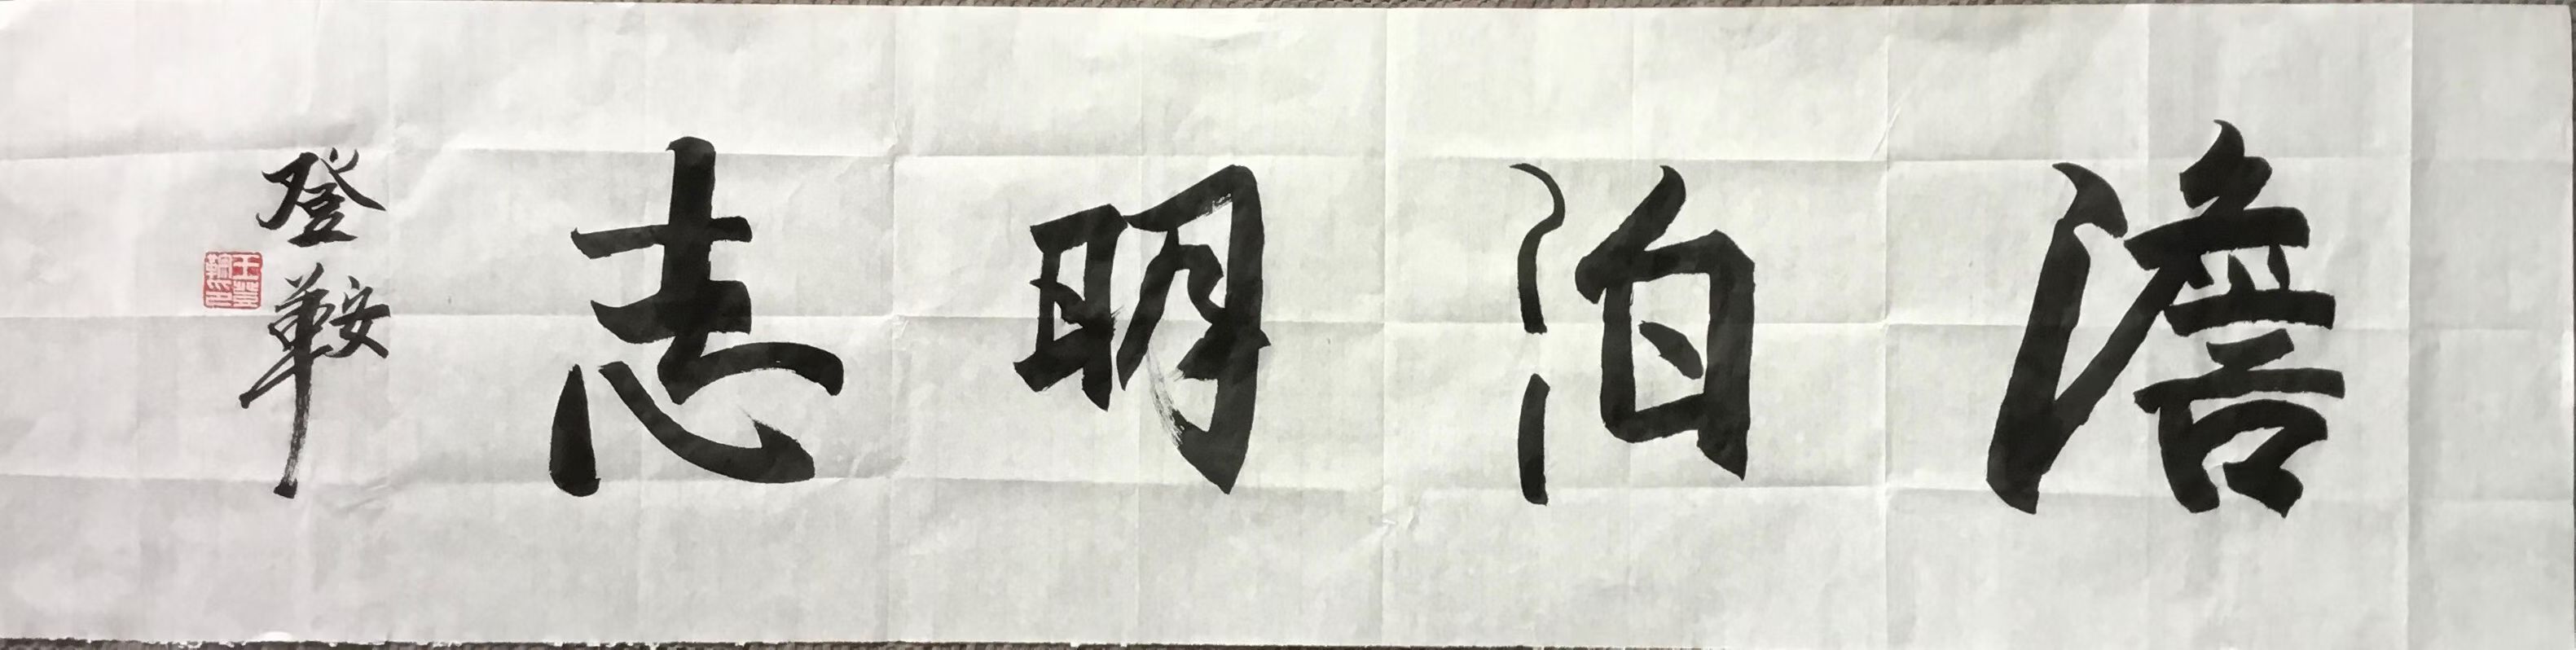 澹泊明志
登鞍
王登鞍印